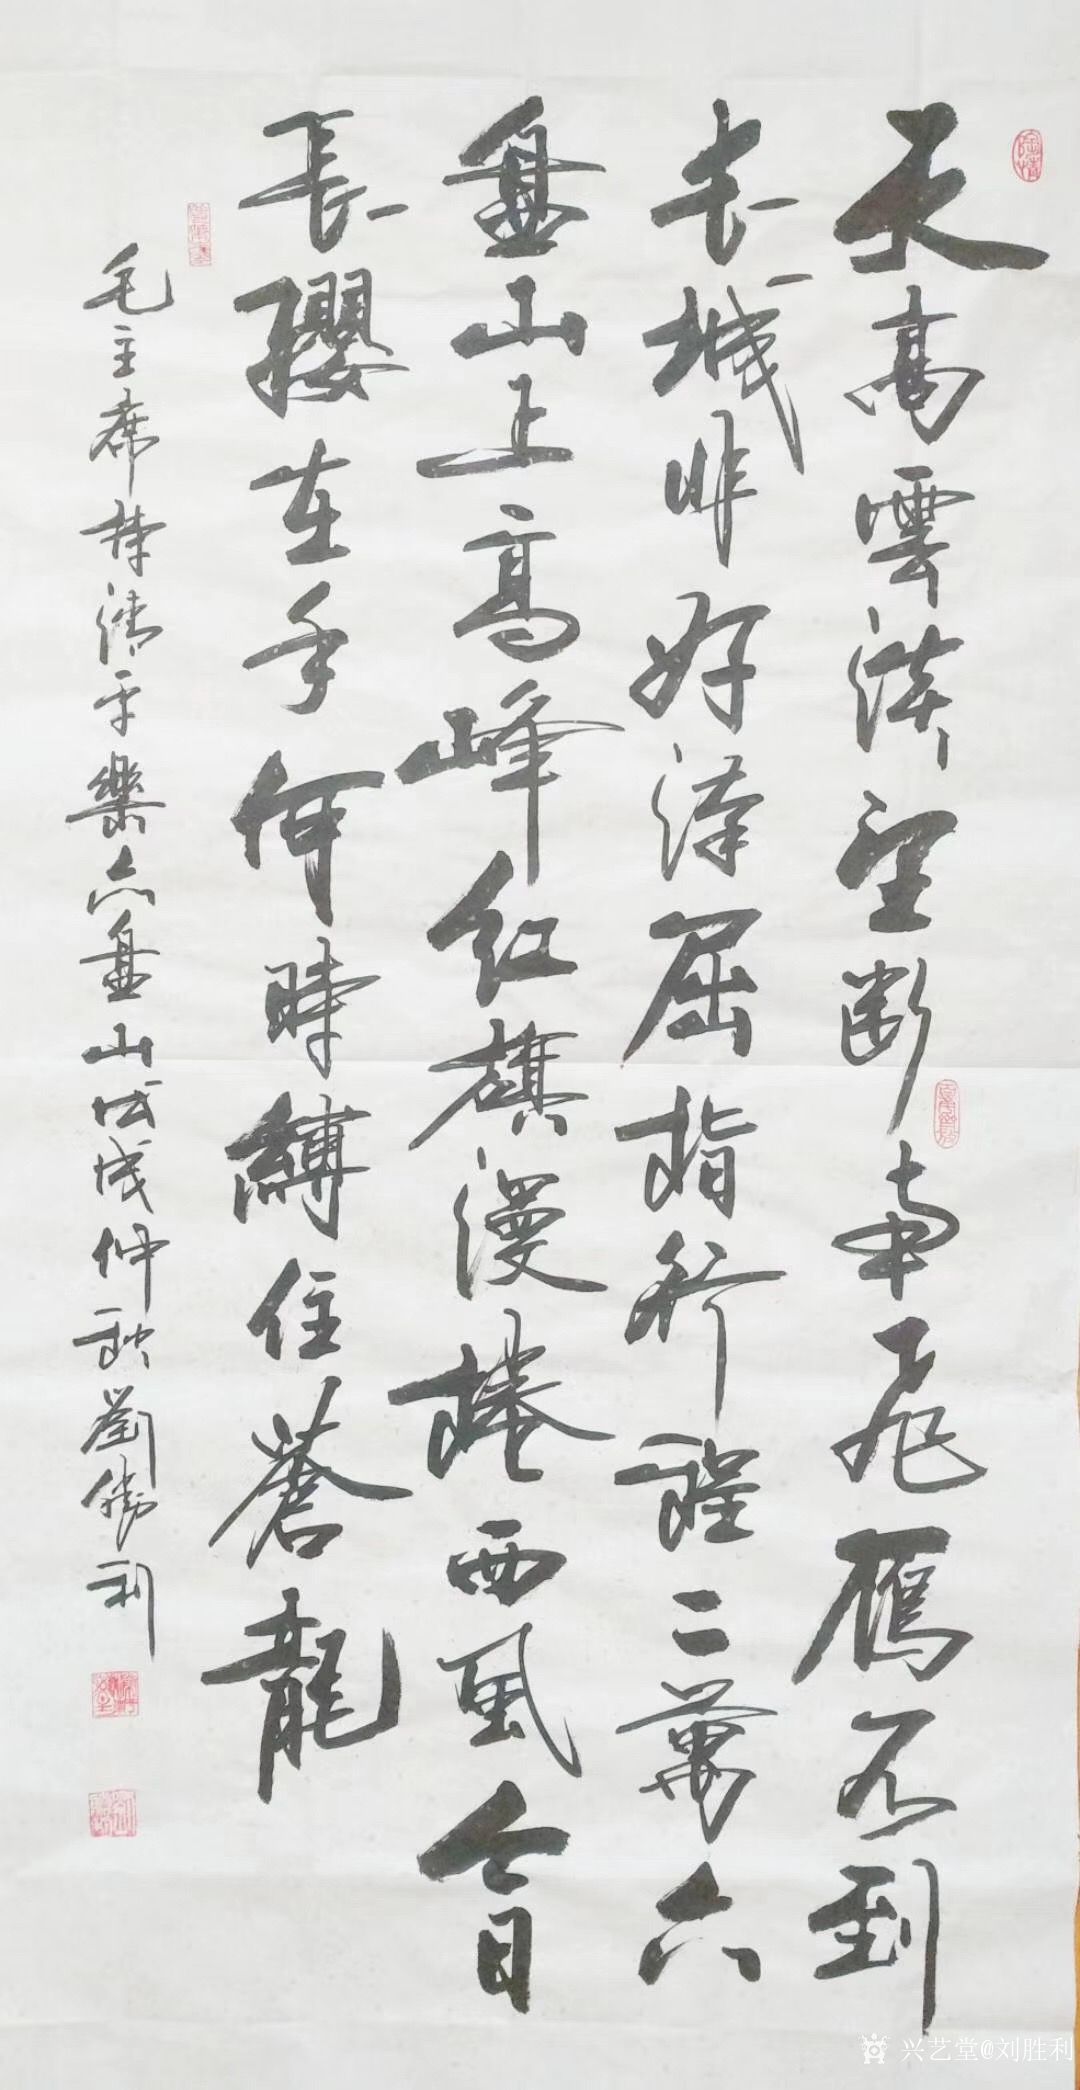 天高雲淡望斷南飛雁不到
长城非好漢屈指行程二萬六
盘山上高峰红旗漫捲西風今日
長纓在手何時縛住蒼龍
毛主席詞清平樂六盘山戊戌仲秋劉勝利
兴艺堂@刘胜利